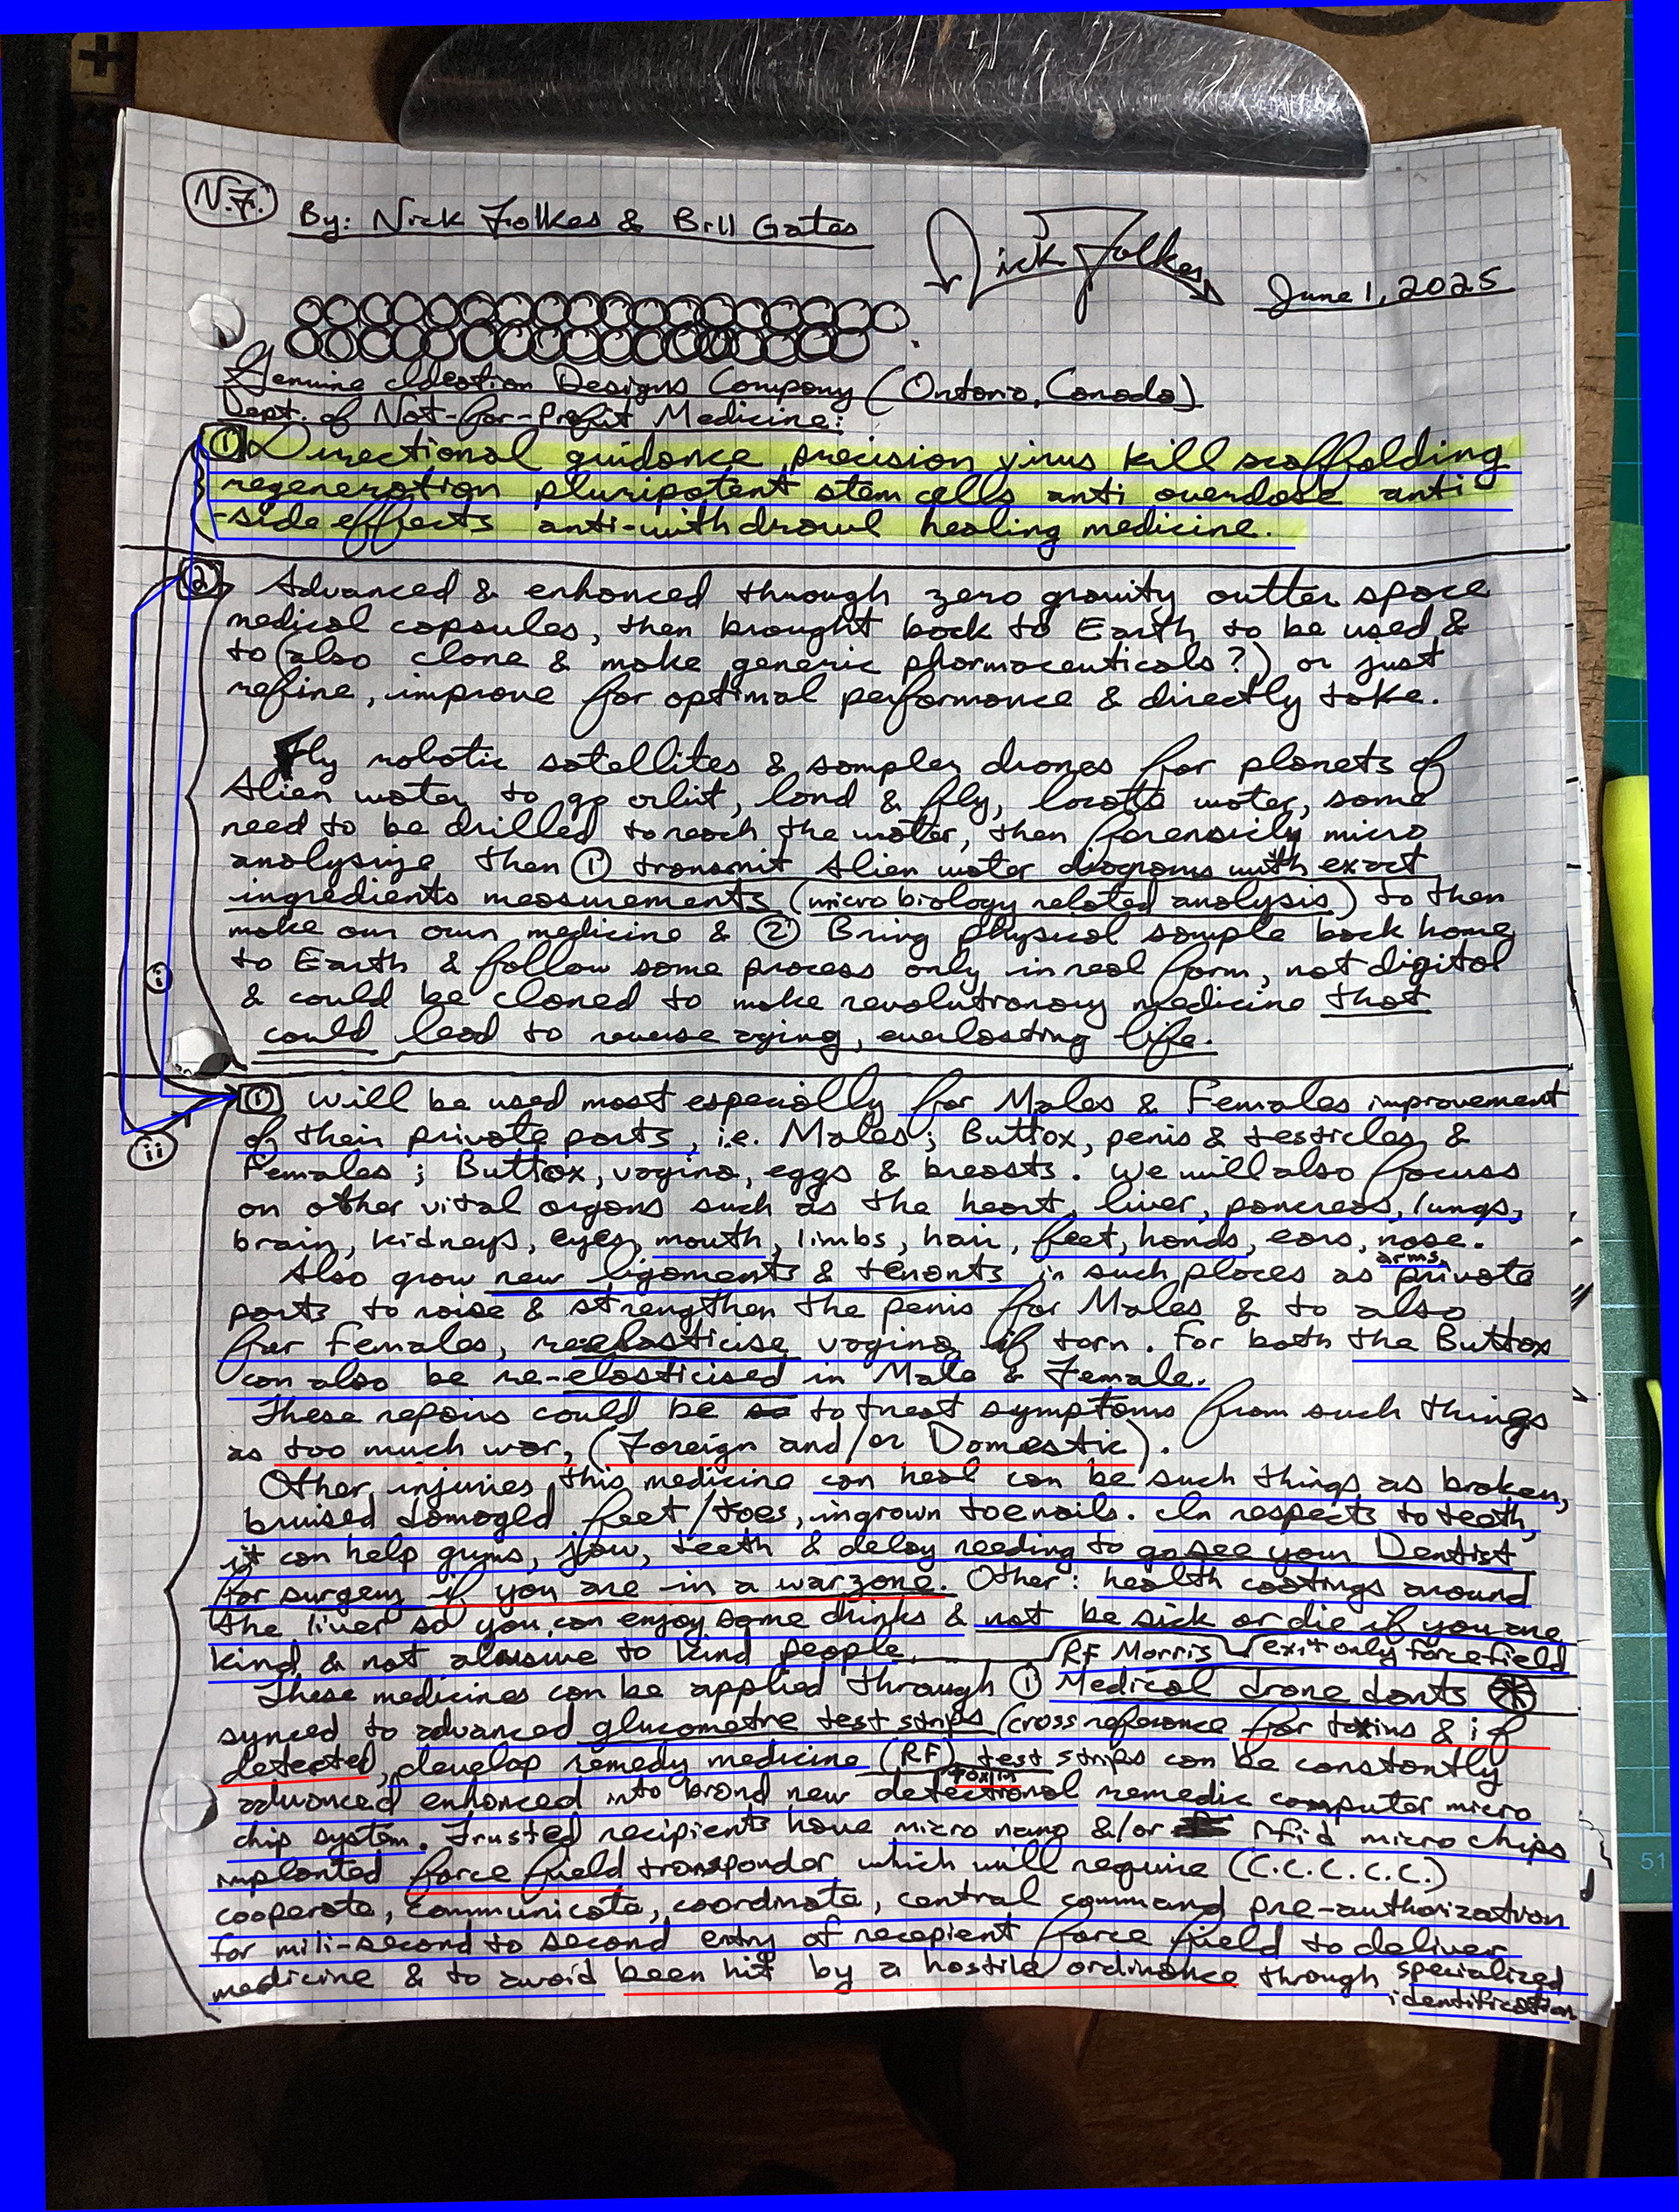 N.F.
By: Nick Folkes & Bill Gates
Nick Folkes
June 1, 2025
Genuine Ideation Designs Company (Ontario, Canada)
Dept. of Not-for-Profit Medicine:
① Directional guidance precision virus kill scaffolding
regeneration pluripotent stem cells anti overdose anti
-side effects anti-withdrawl healing medicine.
② Advanced & enhanced through zero gravity outter space
medical capsules, then brought back to Earth to be used &
to (also clone & make generic pharmaceuticals?) or just
refine, improve for optimal performance & directly take.
Fly robotic satellites & sampler drones for planets of
Alien water to go orbit, land & fly, locate water, some
need to be drilled to reach the water, then forensicly micro
analysize then ① transmit Alien water diagrams with exact
ingredients measurements (micro biology related analysis) to then
make our own medicine & ② Bring physical sample back home
to Earth & follow same process only in real form, not digital
& could be cloned to make revolutionary medicine that
could lead to reverse aging, everlasting life.
i
ii
① Will be used most especially for Males & Females improvement
of their private parts, i.e. Males; Buttox, penis & testicles &
Females; Buttox, vagina, eggs & breasts. We will also focuss
on other vital organs such as the heart, liver, pancreas, lungs,
brain, kidneys, eyes, mouth, limbs, hair, feet, hands, ears, nose.
arms,
Also grow new ligaments & tenants in such places as private
parts to raise & strengthen the penis for Males & to also
for Females, reelasticise vagina if torn. For both the Buttox
can also be re-elasticised in Male & Female.
These repairs could be to treat symptoms from such things
as too much war, (Foreign and/or Domestic).
Other injuries this medicine can heal can be such things as broken,
bruised damaged feet/toes, ingrown toenails. In respects to teeth,
it can help gums, jaw, teeth & delay needing to go see your Dentist
for surgery if you are in a warzone. Other: health coatings around
the liver so you can enjoy some drinks & not be sick or die if you are
kind & not abusive to kind people.
RF Morris exit only forcefield
These medicines can be applied through ① Medical drone darts
synced to advanced glucometre test strips (cross reference for toxins & if
detected, develop remedy medicine (RF) test strips can be constantly
toxin
advanced enhanced into brand new detectional remedic computer micro
chip system. Trusted recipients have micro nano &/or rfid micro chips
implanted force field transponder which will require (C.C.C.C.C.)
cooperate, communicate, coordinate, central command pre-authorization
for mili-second to second entry of recepient force field to deliver
medicine & to avoid been hit by a hostile ordinance through specialized
identification.
51